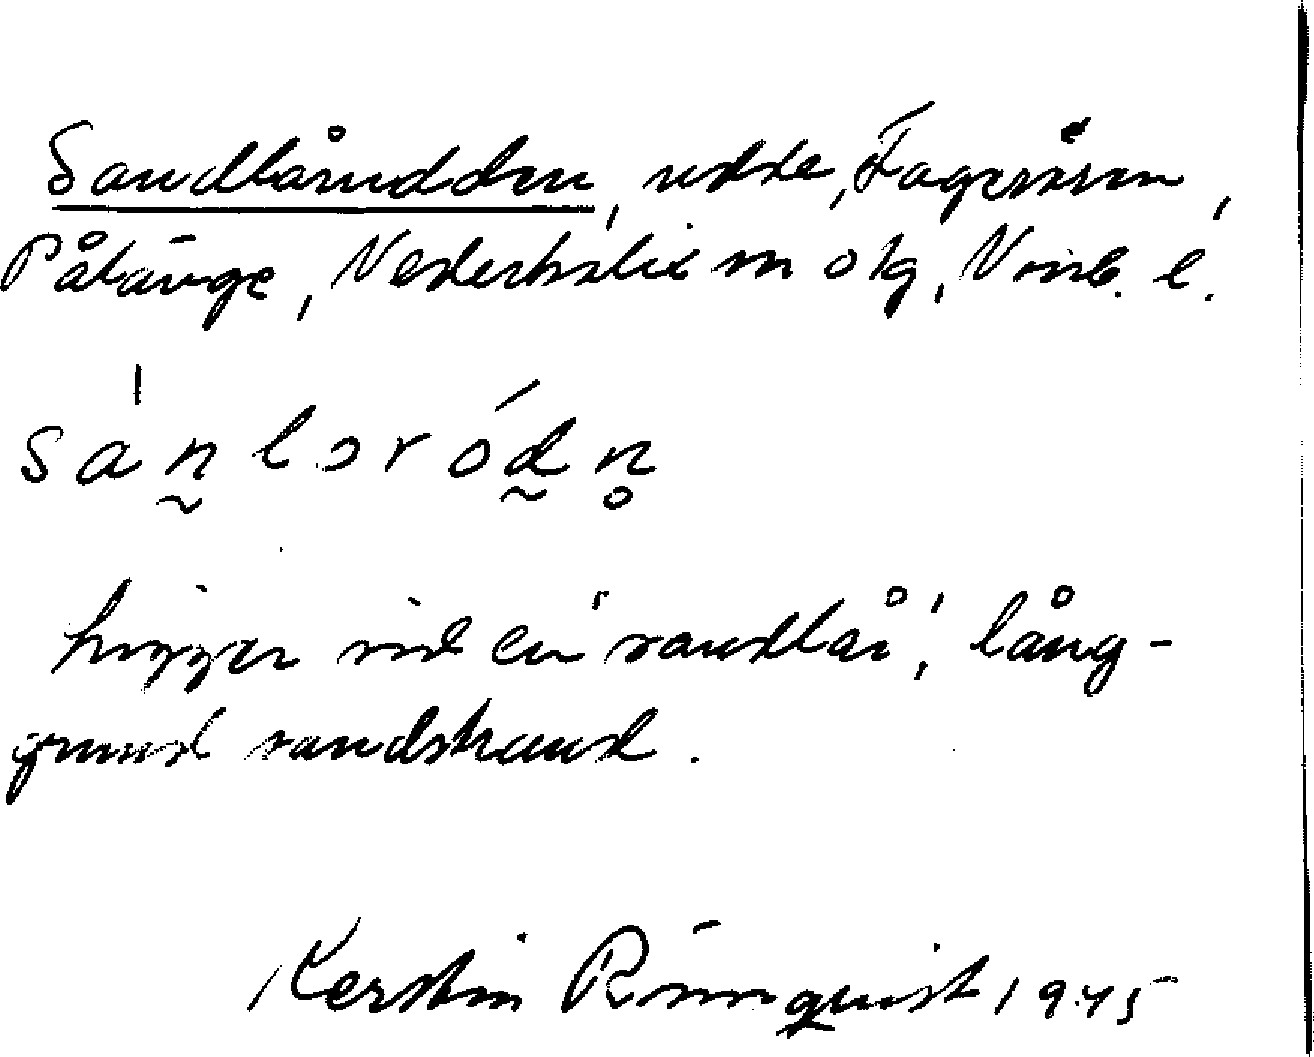 Sandlårudden, udde,
Pålänge, Nederkalix sn o tg, Norrb. l.
sán̰lɔród̰n̥
Ligger vid en 'sandlår', lång-
grund sandstrand.
Kerstin Rönnquist 1945